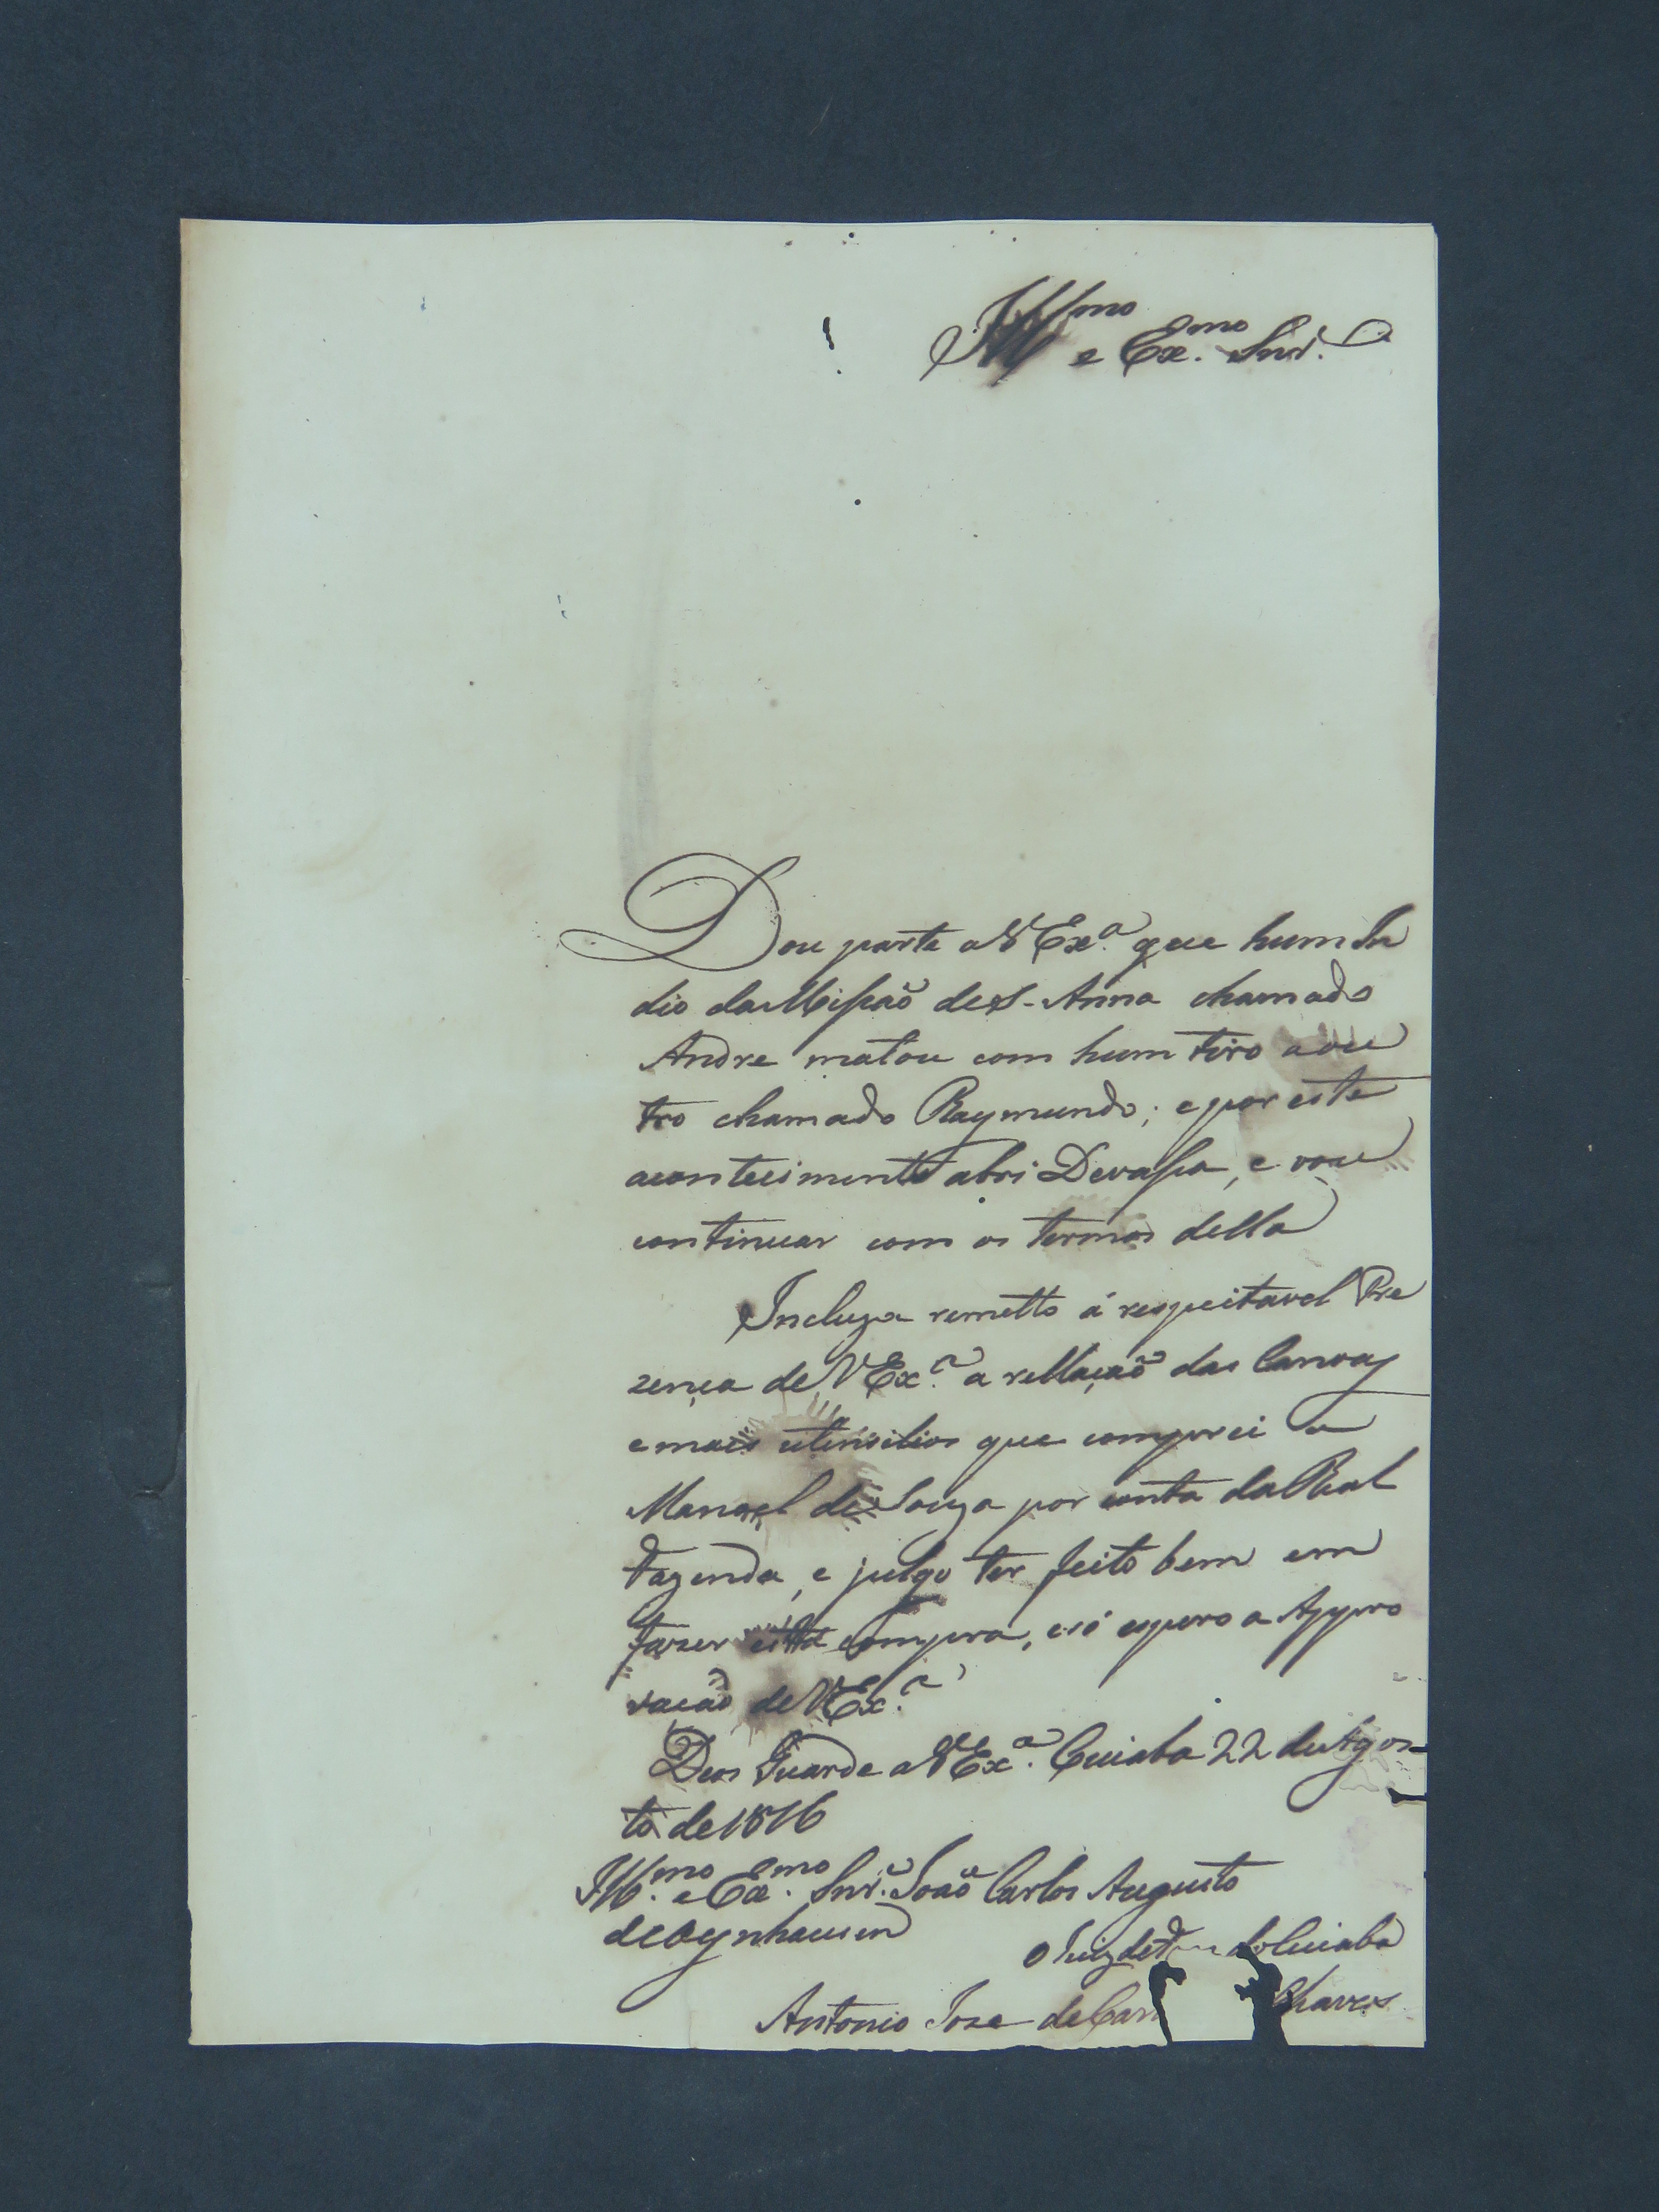 Illmo e Exmo. Snr.
Dou parte a V Exa. que hum In
dio da Missaõ de S. Anna chamado
Andre matou com hum tiro a ou
tro chamado Raymundo; e por este
acontecimento abri Devassa, e vou
continuar com os termos della
Incluza remetto á respeitavel Pre
zença de V Exa. a rellaçaõ das Canoas
e mais utensilios que comprei a
Manoel de Souza por conta da Real
Fazenda, e julgo ter feito bem em
fazer esta compra, e só espero a Appro
vacaõ de V Exa.
Deos Guarde a V Exa. Cuiaba 22 de Agos-
to de 1816
Illmo. e Exmo. Snr. Joaõ Carlos Augusto
de Oeynhausen
O Juiz de do Cuiaba
Antonio Jose de Car Chaves